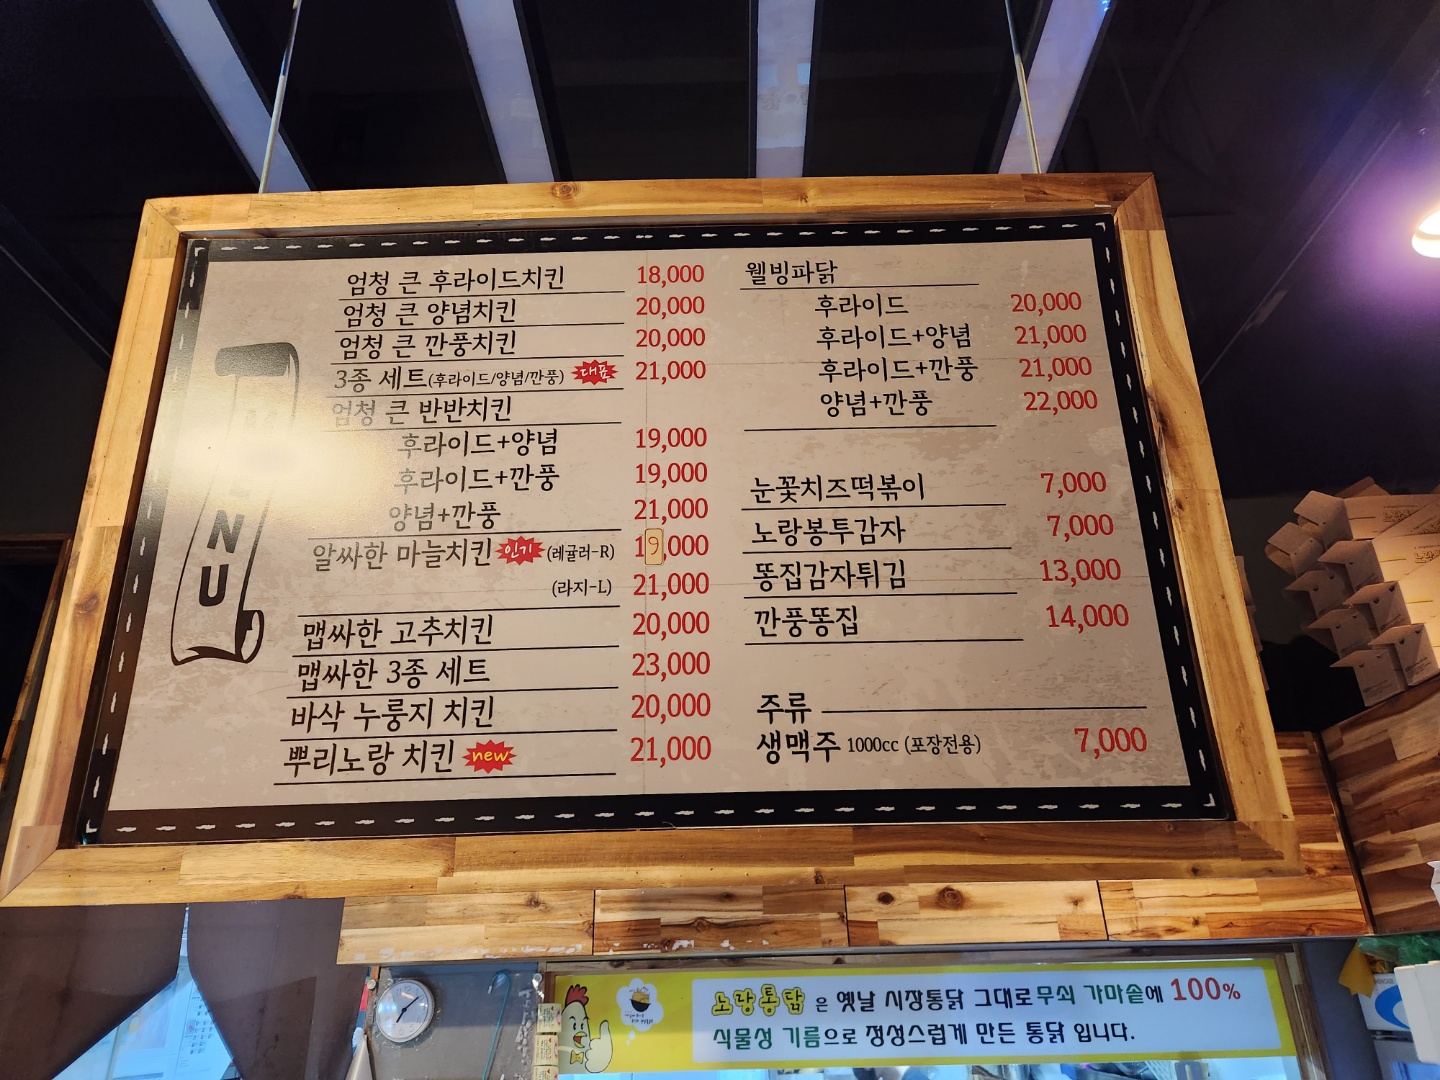 MENU
엄청 큰 후라이드치킨 18,000
엄청 큰 양념치킨 20,000
엄청 큰 깐풍치킨 20,000
3종 세트(후라이드/양념/깐풍) 대품 21,000
엄청 큰 반반치킨
후라이드+양념 19,000
후라이드+깐풍 19,000
양념+깐풍 21,000
알싸한 마늘치킨 인기 (레귤러-R) 19,000
(라지-L) 21,000
맵싸한 고추치킨 20,000
맵싸한 3종 세트 23,000
바삭 누룽지 치킨 20,000
뿌리노랑 치킨 new 21,000
웰빙파닭
후라이드 20,000
후라이드+양념 21,000
후라이드+깐풍 21,000
양념+깐풍 22,000
눈꽃치즈떡볶이 7,000
노랑봉투감자 7,000
똥집감자튀김 13,000
깐풍똥집 14,000
주류
생맥주 1000cc (포장전용) 7,000
노랑통닭 은 옛날 시장통닭 그대로 무쇠 가마솥에 100%
식물성 기름으로 정성스럽게 만든 통닭 입니다.